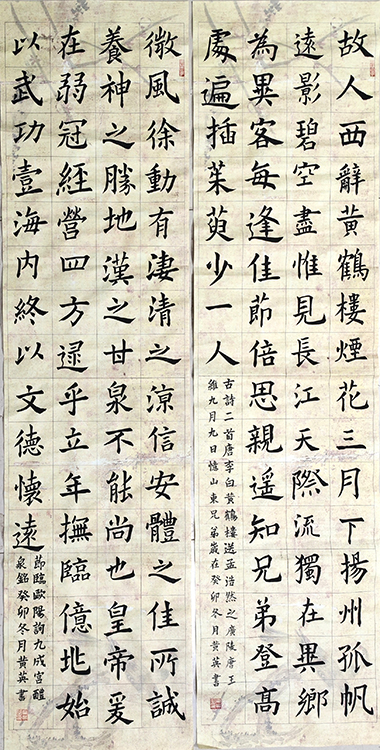 故人西辭黃鶴樓煙花三月下揚州孤帆
遠影碧空盡惟見長江天際流獨在異鄉
為異客每逢佳節倍思親遙知兄弟登高
處遍插茱萸少一人
古詩二首唐李白黃鶴樓送孟浩然之廣陵唐王
維九月九日憶山東兄弟歲在癸卯冬月黃英書
微風徐動有淒清之涼信安體之佳所誠
養神之勝地漢之甘泉不能尚也皇帝爰
在弱冠經營四方逮乎立年撫臨億兆始
以武功壹海內終以文德懷遠
節臨歐陽詢九成宮醴
泉銘癸卯冬月黃英書